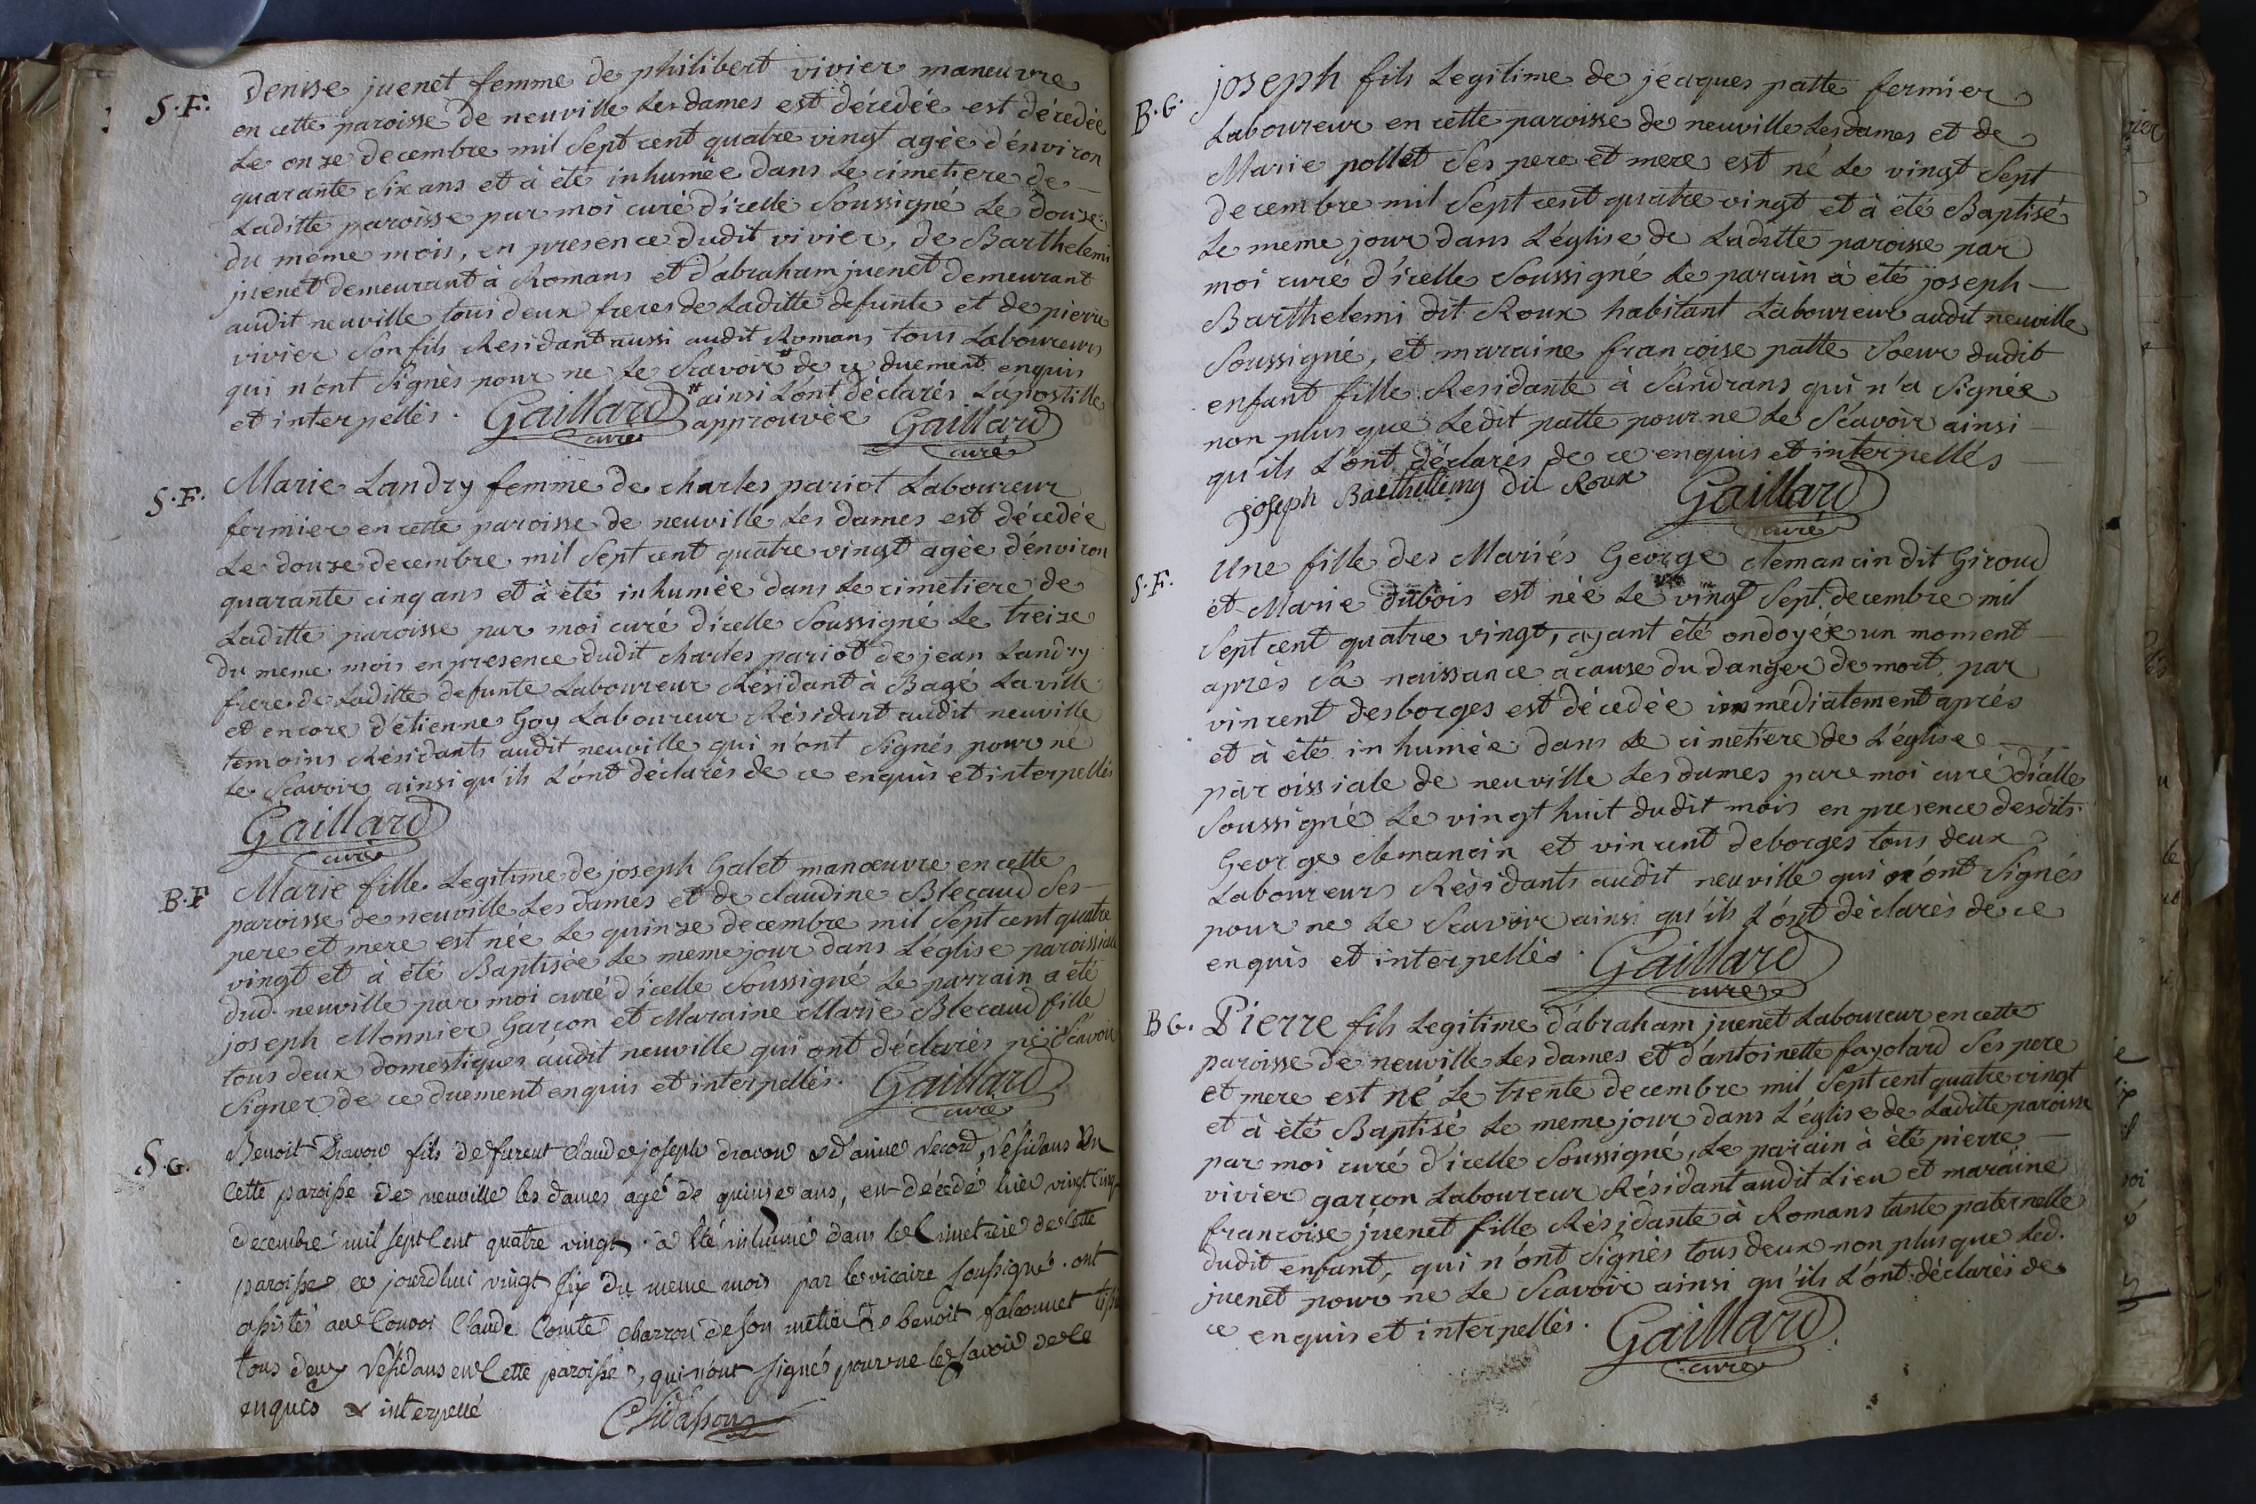 S.F. Denise juenet femme de philibert vivier maneuvre
en cette paroisse de neuville Les dames est décedée est décedée
Le onze decembre mil Sept cent quatre vingt agée d'énviron
quarante Six ans et à été inhumée dans Le cimetiere de
Laditte paroisse par moi curé d'icelle Soussigné Le douze
du même mois, en presence dudit vivier, de Barthelemi
juenet demeurant à Romans et d'abraham juenet demeurant
audit neuville tous deux freres de Laditte defunte et de pierre
vivier Son fils Residant aussi audit Romans tous Laboureurs
qui n'ont Signés pour ne Le Scavoir # de ce duement enquis
et interpellés. Gaillard # ainsi L'ont déclarés L'apostille
curé approuvée Gaillard
curé
S.F. Marie Landry femme de charles pariot Laboureur
fermier en cette paroisse de neuville Les dames est décedée
Le douze decembre mil Sept cent quatre vingt agée d'énviron
quarante cinq ans et à été inhumée dans Le cimetiere de
Laditte paroisse par moi curé d'icelle Soussigné Le treize
du meme mois en presence dudit charles pariot de jean Landry
frere de Laditte defunte Laboureur Résidant à Bagé La ville
et encore d'étienne Goy Laboureur Résidant audit neuville
temoins Résidants audit neuville qui n'ont Signés pour ne
Le Scavoir ainsi qu'ils L'ont déclarés de ce enquis et interpellés
Gaillard
curé
B.F Marie fille Legitime de joseph Galet manœuvre en cette
paroisse de neuville Les dames et de claudine Blecaud Ses
pere et mere est née Le quinze decembre mil Sept cent quatre
vingt et à été Baptisée Le meme jour dans L'église paroissiale
dud. neuville par moi curé d'icelle Soussigné Le parrain a été
joseph Monnier Garçon et Maraine Marie Blecaud fille
tous deux domestiques audit neuville qui ont déclarés ne Scavoir
Signer de ce duement enquis et interpellés. Gaillard
curé
S.G. Benoit Dravou fils de furent Claude joseph dravou & d'anne Record, résidans en
Cette paroisse de neuville les dames agé de quinse ans, est décédé hier vingt cinq
decembre mil sept Cent quatre vingt. a été inhumé dans le Cimetiere de Cette
paroisse ce jourdhui vingt six du meme mois par le vicaire soussigné. ont
assistés au Convoi Claude Comte charron de son metier & benoit falconnet
tous deux résidans en Cette paroisse, qui n'ont signés pour ne le savoir de ce
enquis & interpellé
B.G. joseph fils Legitime de jacques patte fermier
Laboureur en cette paroisse de neuville Les dames et de
Marie pollet Ses pere et mere est né Le vingt Sept
decembre mil Sept cent quatre vingt et à été Baptisé
Le meme jour dans L'église de Laditte paroisse par
moi curé d'icelle Soussigné Le parain à été joseph
Barthelemi dit Roux habitant Laboureur audit neuville
Soussigné, et maraine francoise patte Soeur dudit
enfant fille Residante à Sandrans qui n'a Signée
non plus que Ledit patte pour ne Le Scavoir ainsi
qu'ils L'ont déclarés de ce enquis et interpellés
joseph Barthellemy dit Roux Gaillard
curé
S.F. Une fille des Mariés George clemancin dit Giroud
et Marie dubois est née Le vingt Sept decembre mil
Sept cent quatre vingt, ayant été ondoyée un moment
après Sa naissance a cause du danger de mort, par
vincent desborges est décedée immédiatement aprés
et à été inhumée dans Le cimetiere de L'église
paroissiale de neuville Les dames par moi curé d'icelle
Soussigné Le vingt huit dudit mois en presence desdits
George clemancin et vincent deborges tous deux
Laboureurs Résidants audit neuville qui n'ont Signés
pour ne Le Scavoir ainsi qu'ils L'ont déclarés de ce
enquis et interpellés. Gaillard
curé
B G. Pierre fils Legitime d'abraham juenet Laboureur en cette
paroisse de neuville Les dames et d'antoinette fayolard Ses pere
et mere est né Le trente decembre mil Sept cent quatre vingt
et à été Baptisé Le meme jour dans L'église de Laditte paroisse
par moi curé d'icelle Soussigné, Le parain à été pierre
vivier garçon Laboureur Résidant audit Lieu et maraine
francoise juenet fille Résidante à Romans tante paternelle
dudit enfant, qui n'ont Signés tous deux non plus que Led.
juenet pour ne Le Scavoir ainsi qu'ils L'ont déclarés de
ce enquis et interpellés. Gaillard
curé